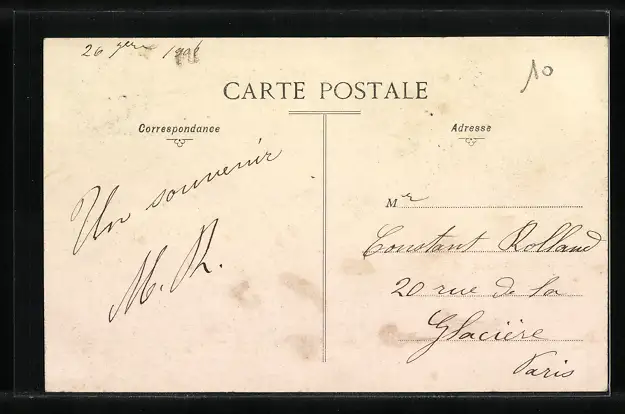 26 7bre 1906
10
CARTE POSTALE
Correspondance
Adresse
Un souvenir
M. R.
Mr
Constant Rolland
20 rue de la
Glacière
Paris